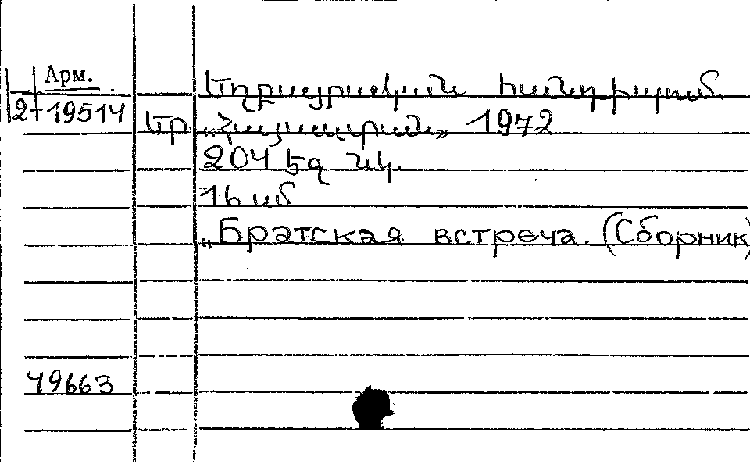 Арм.
2-19514
Եղբայրական հանդիպում
Եր „Հայաստան» 1972
204 էջ նկ.
16 սմ
„Братская встреча. (Сборник)
49663